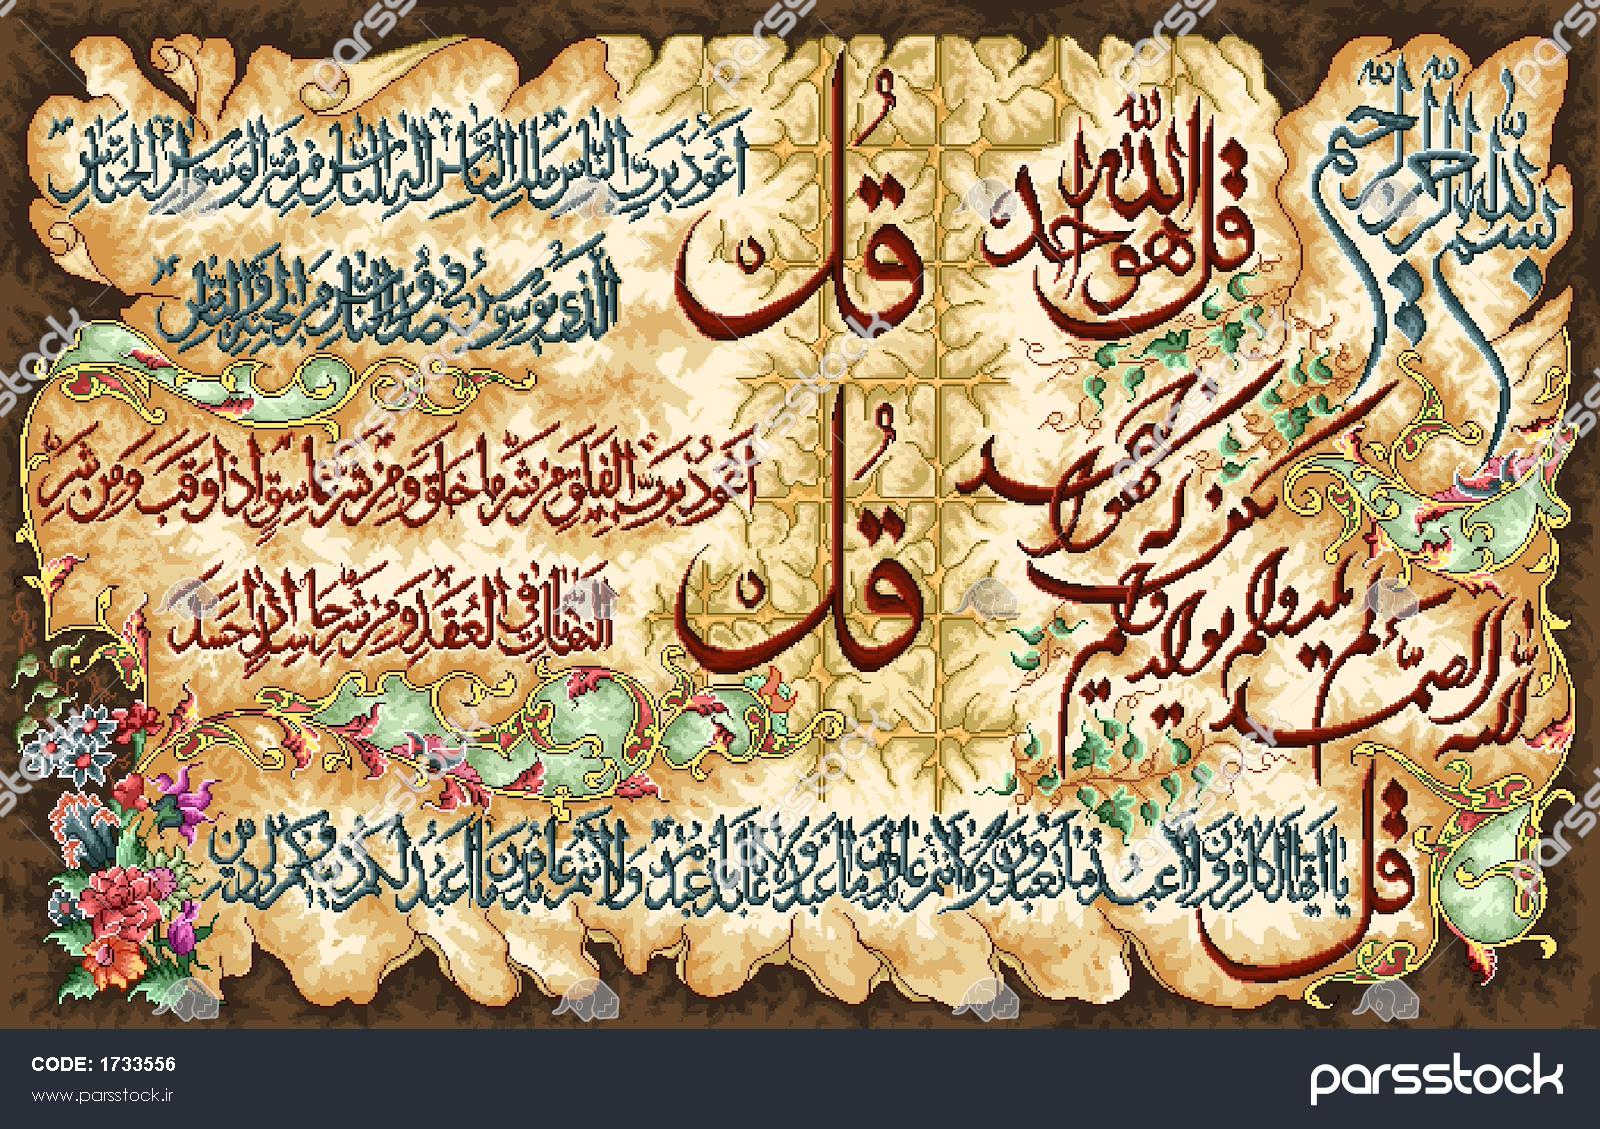 بسم الله الرحمن الرحيم
قل هو الله احد
الله الصمد لم يلد ولم يولد ولم يكن له كفوا احد
قل
اعوذ برب الناس ملك الناس اله الناس من شر الوسواس الخناس
الذى يوسوس فى صدور الناس من الجنة والناس
قل
اعوذ برب الفلق من شر ما خلق ومن شر غاسق اذا وقب ومن شر
النفاثات فى العقد ومن شر حاسد اذا حسد
قل
يا ايها الكافرون لا اعبد ما تعبدون ولا انتم عابدون ما اعبد ولا انا عابد ما عبدتم ولا انتم عابدون ما اعبد لكم دينكم ولى دين
CODE: 1733556
www.parsstock.ir
parsstock